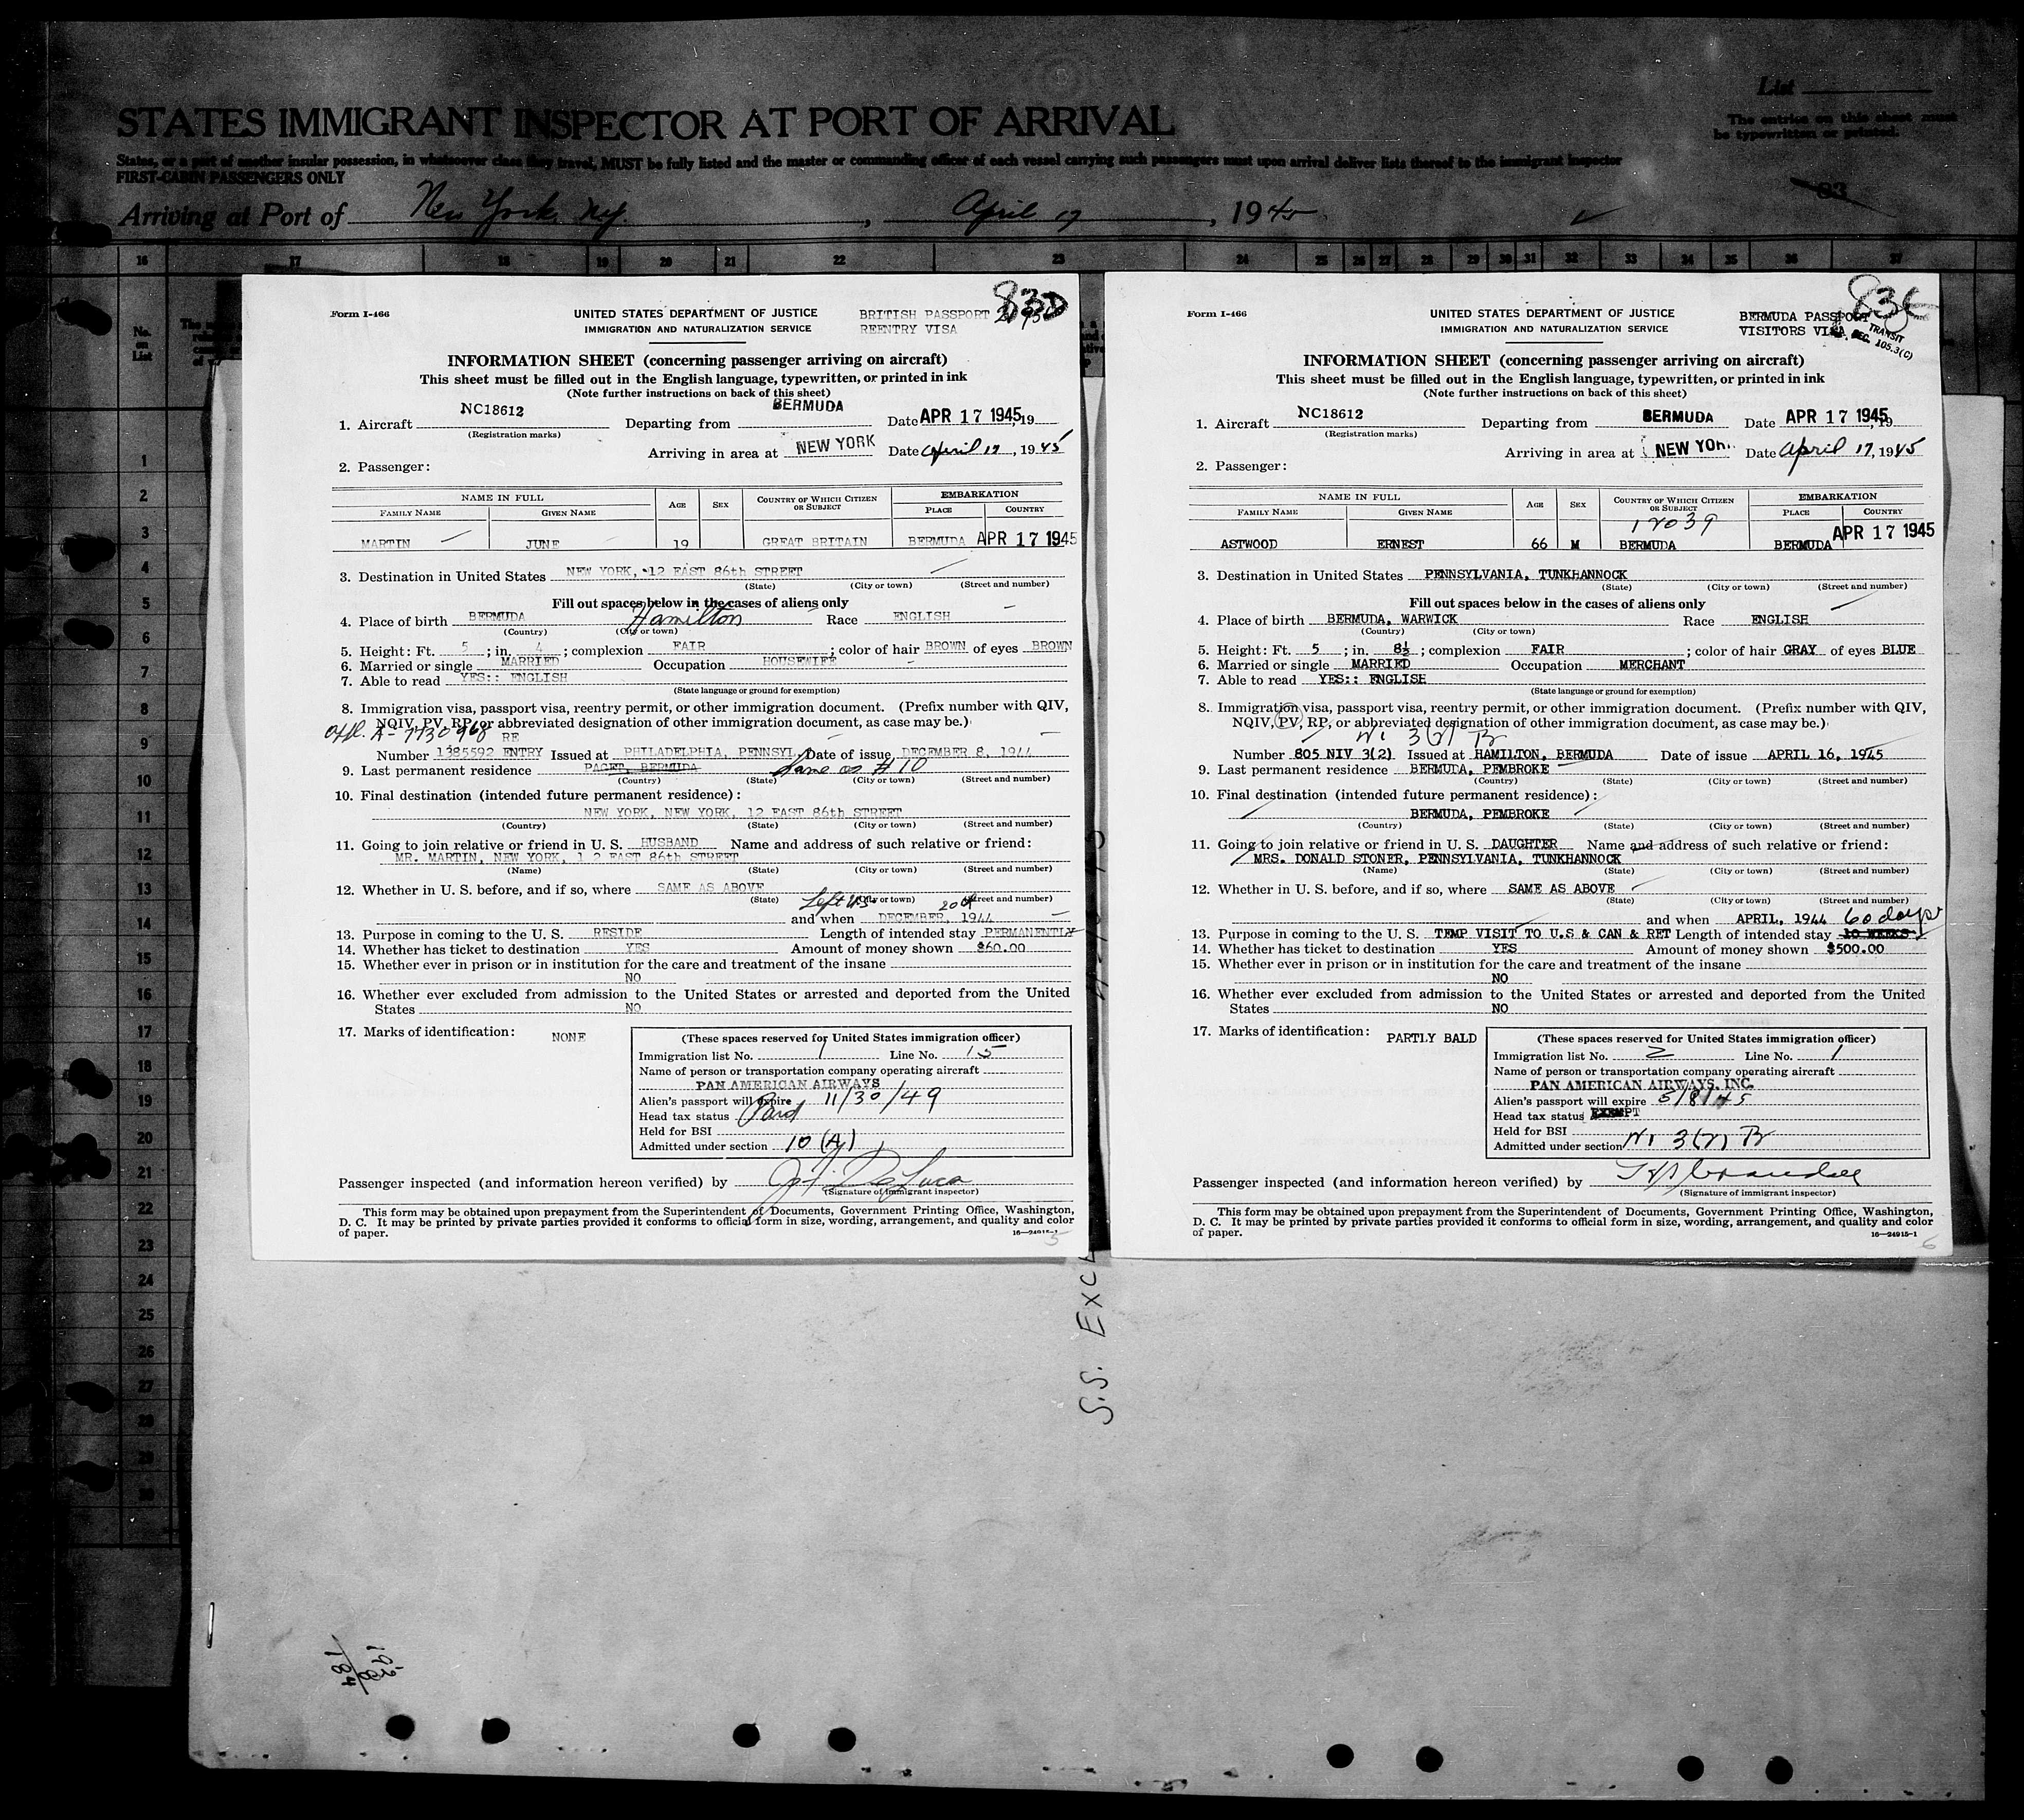 List
STATES IMMIGRANT INSPECTOR AT PORT OF ARRIVAL
The entries on this sheet must
be typewritten or printed.
States, or a port of another insular possession, in whatsoever class they travel, MUST be fully listed and the master or commanding officer of each vessel carrying such passengers must upon arrival deliver lists thereof to the immigrant inspector
FIRST-CABIN PASSENGERS ONLY
83
Arriving at Port of New York, NY. , April 17 , 1945
16 17 18 19 20 21 22 23 24 25 26 27 28 29 30 31 32 33 34 35 36 37
No.
on
List
1
2
3
4
5
6
7
8
9
10
11
12
13
14
15
16
17
18
19
20
21
22
23
24
25
26
27
28
29
30
83D
Form I-466
UNITED STATES DEPARTMENT OF JUSTICE
IMMIGRATION AND NATURALIZATION SERVICE
BRITISH PASSPORT
REENTRY VISA
INFORMATION SHEET (concerning passenger arriving on aircraft)
This sheet must be filled out in the English language, typewritten, or printed in ink
(Note further instructions on back of this sheet)
1. Aircraft NC18612 Departing from BERMUDA Date APR 17 1945, 19
(Registration marks)
Arriving in area at NEW YORK Date April 17, 1945
2. Passenger:
NAME IN FULL AGE SEX COUNTRY OF WHICH CITIZEN OR SUBJECT EMBARKATION
FAMILY NAME GIVEN NAME PLACE COUNTRY
MARTIN JUNE 19 GREAT BRITAIN BERMUDA APR 17 1945
3. Destination in United States NEW YORK, 12 EAST 86th STREET
(State) (City or town) (Street and number)
Fill out spaces below in the cases of aliens only
4. Place of birth BERMUDA Hamilton Race ENGLISH
(Country) (City or town)
5. Height: Ft. 5 ; in. 4 ; complexion FAIR ; color of hair BROWN of eyes BROWN
6. Married or single MARRIED Occupation HOUSEWIFE
7. Able to read YES:: ENGLISH
(State language or ground for exemption)
8. Immigration visa, passport visa, reentry permit, or other immigration document. (Prefix number with QIV,
NQIV, PV, RP, or abbreviated designation of other immigration document, as case may be.)
A-7730968 RE
Number 1385592 ENTRY Issued at PHILADELPHIA, PENNSYL. Date of issue DECEMBER 8, 1944
9. Last permanent residence PAGET, BERMUDA Same as #10
(Country) (State) (City or town) (Street and number)
10. Final destination (intended future permanent residence):
NEW YORK, NEW YORK, 12 EAST 86th STREET
(Country) (State) (City or town) (Street and number)
11. Going to join relative or friend in U. S. HUSBAND Name and address of such relative or friend:
MR. MARTIN, NEW YORK, 1 2 EAST 86th STREET
(Name) (State) (City or town) (Street and number)
12. Whether in U. S. before, and if so, where SAME AS ABOVE
(State) (City or town) (Street and number)
Left US 20th
and when DECEMBER, 1944
13. Purpose in coming to the U. S. RESIDE Length of intended stay PERMANENTLY
14. Whether has ticket to destination YES Amount of money shown $60.00
15. Whether ever in prison or in institution for the care and treatment of the insane
NO
16. Whether ever excluded from admission to the United States or arrested and deported from the United
States NO
17. Marks of identification: NONE
(These spaces reserved for United States immigration officer)
Immigration list No. 1 Line No. 15
Name of person or transportation company operating aircraft
PAN AMERICAN AIRWAYS
Alien's passport will expire 11/30/49
Head tax status Paid
Held for BSI
Admitted under section 10 (A)
Passenger inspected (and information hereon verified) by
(Signature of immigrant inspector)
This form may be obtained upon prepayment from the Superintendent of Documents, Government Printing Office, Washington,
D. C. It may be printed by private parties provided it conforms to official form in size, wording, arrangement, and quality and color
of paper. 16—24915-1
5
83E
Form I-466
UNITED STATES DEPARTMENT OF JUSTICE
IMMIGRATION AND NATURALIZATION SERVICE
BERMUDA PASSPORT
VISITORS VISA
TRANSIT
SEC. 105.3(C)
INFORMATION SHEET (concerning passenger arriving on aircraft)
This sheet must be filled out in the English language, typewritten, or printed in ink
(Note further instructions on back of this sheet)
1. Aircraft NC18612 Departing from BERMUDA Date APR 17 1945, 19
(Registration marks)
Arriving in area at NEW YORK Date April 17, 1945
2. Passenger:
NAME IN FULL AGE SEX COUNTRY OF WHICH CITIZEN OR SUBJECT EMBARKATION
FAMILY NAME GIVEN NAME PLACE COUNTRY
12039
ASTWOOD ERNEST 66 M BERMUDA BERMUDA APR 17 1945
3. Destination in United States PENNSYLVANIA, TUNKHANNOCK
(State) (City or town) (Street and number)
Fill out spaces below in the cases of aliens only
4. Place of birth BERMUDA, WARWICK Race ENGLISH
(Country) (City or town)
5. Height: Ft. 5 ; in. 8½ ; complexion FAIR ; color of hair GRAY of eyes BLUE
6. Married or single MARRIED Occupation MERCHANT
7. Able to read YES:: ENGLISH
(State language or ground for exemption)
8. Immigration visa, passport visa, reentry permit, or other immigration document. (Prefix number with QIV,
NQIV, PV, RP, or abbreviated designation of other immigration document, as case may be.)
NI 3(2) B
Number 805 NIV 3(2) Issued at HAMILTON, BERMUDA Date of issue APRIL 16, 1945
9. Last permanent residence BERMUDA, PEMBROKE
(Country) (State) (City or town) (Street and number)
10. Final destination (intended future permanent residence):
BERMUDA, PEMBROKE
(Country) (State) (City or town) (Street and number)
11. Going to join relative or friend in U. S. DAUGHTER Name and address of such relative or friend:
MRS. DONALD STONER, PENNSYLVANIA, TUNKHANNOCK
(Name) (State) (City or town) (Street and number)
12. Whether in U. S. before, and if so, where SAME AS ABOVE
(State) (City or town) (Street and number)
and when APRIL, 1944 60 days
13. Purpose in coming to the U. S. TEMP VISIT TO U.S & CAN & RET Length of intended stay 10 WEEKS
14. Whether has ticket to destination YES Amount of money shown $500.00
15. Whether ever in prison or in institution for the care and treatment of the insane
NO
16. Whether ever excluded from admission to the United States or arrested and deported from the United
States NO
17. Marks of identification: PARTLY BALD
(These spaces reserved for United States immigration officer)
Immigration list No. 2 Line No. 1
Name of person or transportation company operating aircraft
PAN AMERICAN AIRWAYS, INC.
Alien's passport will expire 5/8/45
Head tax status EXEMPT
Held for BSI
Admitted under section NI 3(2) B
Passenger inspected (and information hereon verified) by
(Signature of immigrant inspector)
This form may be obtained upon prepayment from the Superintendent of Documents, Government Printing Office, Washington,
D. C. It may be printed by private parties provided it conforms to official form in size, wording, arrangement, and quality and color
of paper. 16—24915-1
6
S.S.